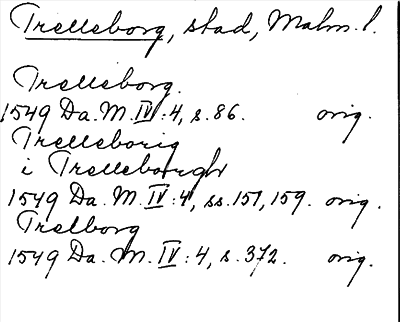 Trelleborg, stad, Malm. l.
Trelleborg.
1549 Da. M. IV: 4, s. 86. orig.
Trelleborig
i Trelleborgh
1549 Da. M. IV: 4, ss. 151, 159. orig.
Trelborg
1549 Da. M. IV: 4, s. 372. orig.